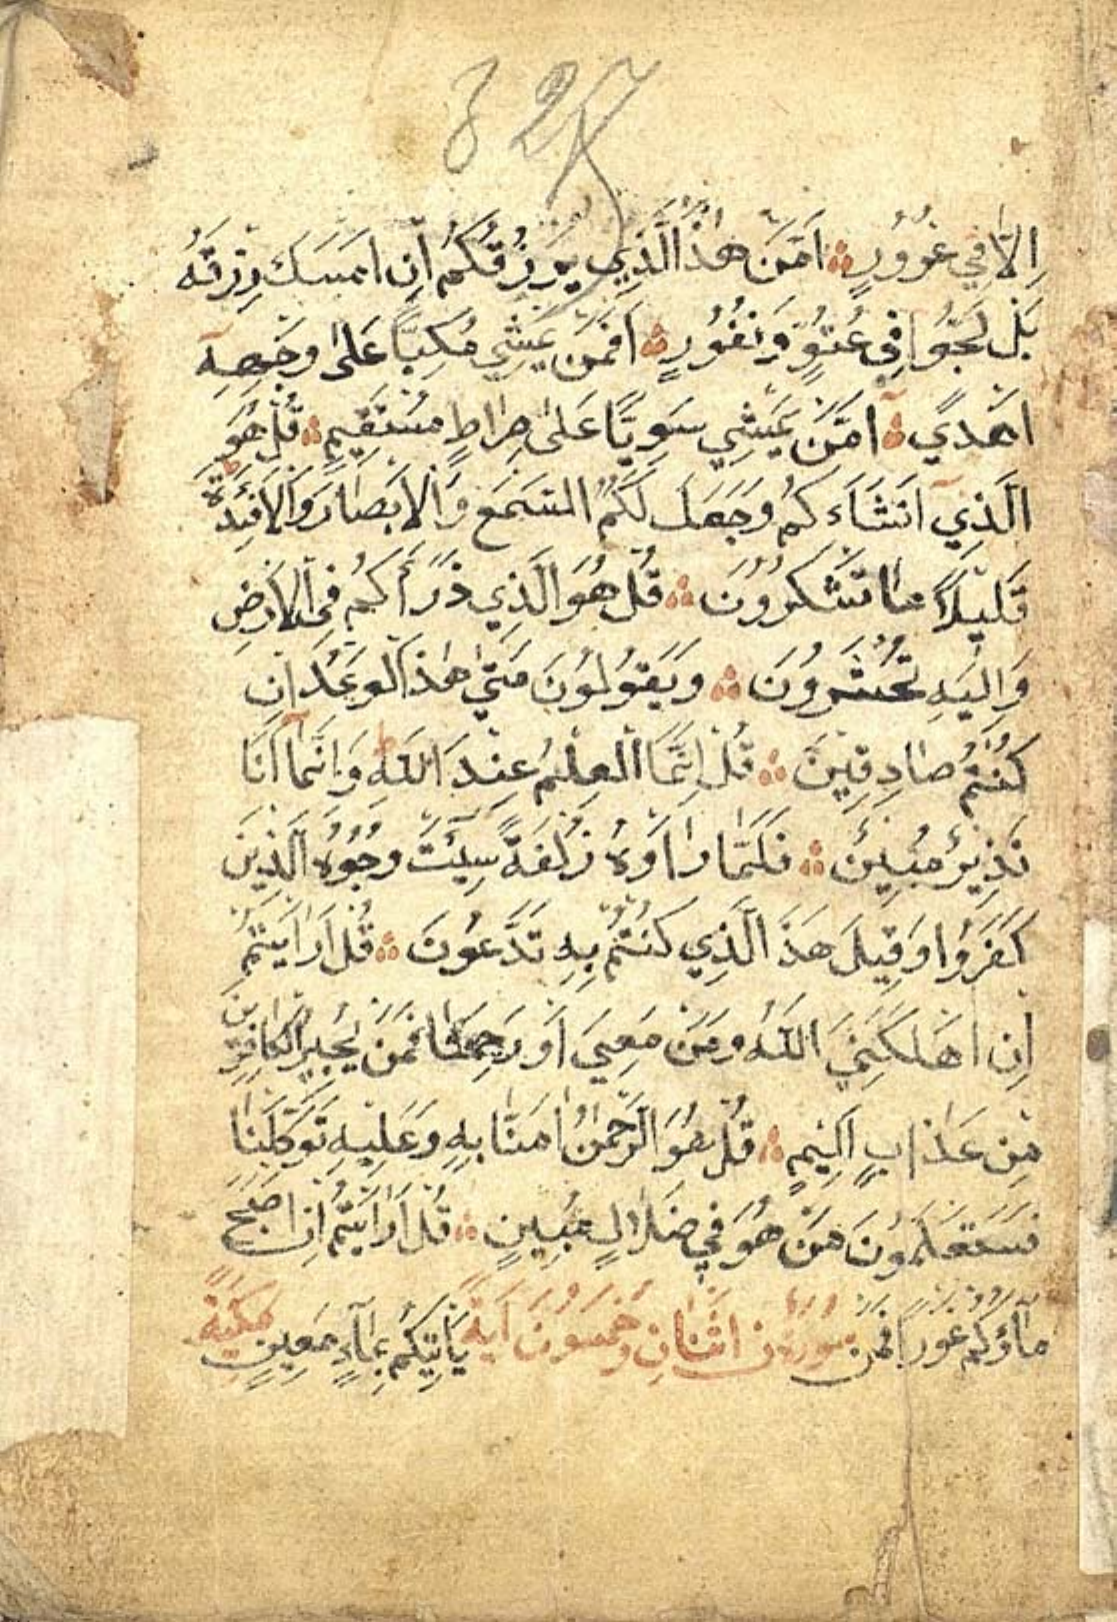 327
اِلَّا فِي غُرُورٍ اَمَّنْ هٰذَا الَّذِي يَرْزُقُكُمْ اِنْ اَمْسَكَ رِزْقَهُ
بَلْ لَجُّوا فِي عُتُوٍّ وَنُفُورٍ اَفَمَنْ يَمْشِي مُكِبًّا عَلٰى وَجْهِهِ
اَهْدٰي اَمَّنْ يَمْشِي سَوِيًّا عَلٰى صِرَاطٍ مُسْتَقِيمٍ قُلْ هُوَ
الَّذِي اَنْشَاَكُمْ وَجَعَلَ لَكُمُ السَّمْعَ وَالْاَبْصَارَ وَالْاَفْئِدَةَ
قَلِيلًا مَا تَشْكُرُونَ قُلْ هُوَ الَّذِي ذَرَأَكُمْ فِي الْاَرْضِ
وَاِلَيْهِ تُحْشَرُونَ وَيَقُولُونَ مَتٰي هٰذَا الْوَعْدُ اِنْ
كُنْتُمْ صَادِقِينَ قُلْ اِنَّمَا الْعِلْمُ عِنْدَ اللّٰهِ وَاِنَّمَا اَنَا
نَذِيرٌ مُبِينٌ فَلَمَّا رَاَوْهُ زُلْفَةً سِيئَتْ وُجُوهُ الَّذِينَ
كَفَرُوا وَقِيلَ هَذَ الَّذِي كُنْتُمْ بِهِ تَدَّعُونَ قُلْ اَرَاَيْتُمْ
اِنْ اَهْلَكَنِيَ اللّٰهُ وَمَنْ مَعِيَ اَوْ رَحِمَنَا فَمَنْ يُجِيرُ الْكَافِرِينَ
مِنْ عَذَابٍ اَلِيمٍ قُلْ هُوَ الرَّحْمٰنُ اٰمَنَّا بِهِ وَعَلَيْهِ تَوَكَّلْنَا
فَسَتَعْلَمُونَ مَنْ هُوَ فِي ضَلَالٍ مُبِينٍ قُلْ اَرَاَيْتُمْ اِنْ اَصْبَحَ
مَاؤُكُمْ غَوْرًا فَمَنْ سُورَةُ ن اثْنَانِ وَخَمْسُونَ اٰيَةً يَاْتِيكُمْ بِمَاءٍ مَعِينٍ مَكِّيَّة